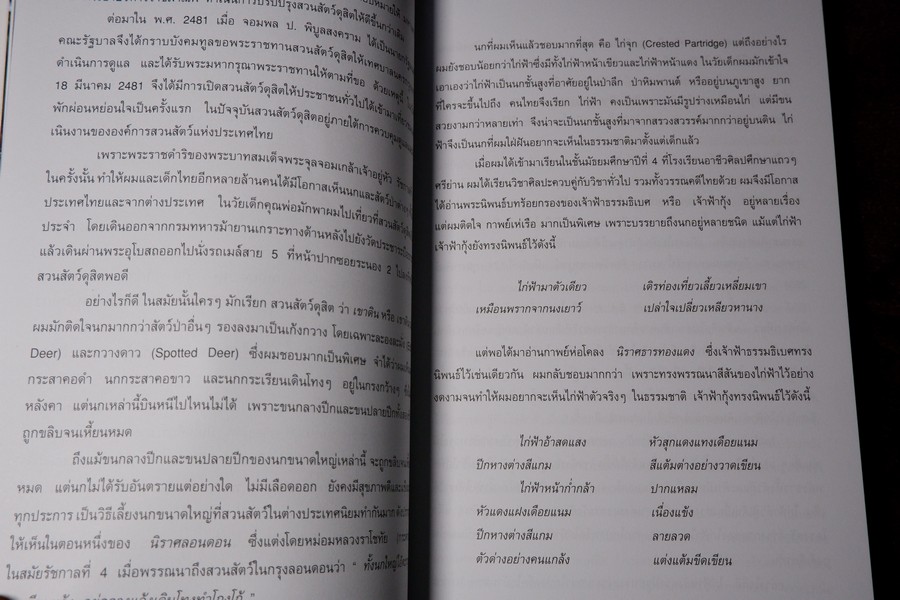 ต่อมาใน พ.ศ. 2481 เมื่อ จอมพล ป. พิบูลสงคราม ได้เป็นนายก
คณะรัฐบาลจึงได้กราบบังคมทูลขอพระราชทานสวนสัตว์ดุสิตให้เทศบาล
ดำเนินการดูแล และได้รับพระมหากรุณาพระราชทานให้ตามที่ขอ ด้วยเหตุนี้
18 มีนาคม 2481 จึงได้มีการเปิดสวนสัตว์ดุสิตให้ประชาชนทั่วไปได้เข้ามาเที่ยว
พักผ่อนหย่อนใจเป็นครั้งแรก ในปัจจุบันสวนสัตว์ดุสิตอยู่ภายใต้การควบคุม
เนินงานขององค์การสวนสัตว์แห่งประเทศไทย
เพราะพระราชดำริของพระบาทสมเด็จพระจุลจอมเกล้าเจ้าอยู่หัว
ในครั้งนั้น ทำให้ผมและเด็กไทยอีกหลายล้านคนได้มีโอกาสเห็นนกและสัตว์ป่า
ประเทศไทยและจากต่างประเทศ ในวัยเด็กคุณพ่อมักพาผมไปเที่ยวที่สวนสัตว์
ประจำ โดยเดินออกจากกรมทหารม้ายานเกราะทางด้านหลังไปยังวัดประชาระบือธรรม
แล้วเดินผ่านพระอุโบสถออกไปนั่งรถเมล์สาย 5 ที่หน้าปากซอยระนอง 2
สวนสัตว์ดุสิตพอดี
อย่างไรก็ดี ในสมัยนั้นใครๆ มักเรียก สวนสัตว์ดุสิต ว่า เขาดิน หรือ
ผมมักติดใจนกมากกว่าสัตว์ป่าอื่นๆ รองลงมาเป็นเก้งกวาง โดยเฉพาะละองละมั่ง
Deer) และกวางดาว (Spotted Deer) ซึ่งผมชอบมากเป็นพิเศษ จำได้ว่า
กระสาคอดำ นกกระสาคอขาว และนกกระเรียนเดินโทงๆ อยู่ในกรงกว้างๆ
หลังคา แต่นกเหล่านี้บินหนีไปไหนไม่ได้ เพราะขนกลางปีกและขนปลายปีก
ถูกขลิบจนเหี้ยนหมด
ถึงแม้ขนกลางปีกและขนปลายปีกของนกขนาดใหญ่เหล่านี้ จะถูก
หมด แต่นกไม่ได้รับอันตรายแต่อย่างใด ไม่มีเลือดออก ยังคงมีสุขภาพดี
ทุกประการ เป็นวิธีเลี้ยงนกขนาดใหญ่ที่สวนสัตว์ในต่างประเทศนิยมทำกันมาก
ให้เห็นในตอนหนึ่งของ นิราศลอนดอน ซึ่งแต่งโดยหม่อมหลวงราโชทัย
ในสมัยรัชกาลที่ 4 เมื่อพรรณนาถึงสวนสัตว์ในกรุงลอนดอนว่า " ทั้งนกใหญ่
นกที่ผมเห็นแล้วชอบมากที่สุด คือ ไก่จุก (Crested Partridge) แต่ถึงอย่างไร
ผมยังชอบน้อยกว่าไก่ฟ้าซึ่งมีทั้งไก่ฟ้าหน้าเขียวและไก่ฟ้าหน้าแดง ในวัยเด็กผมมักเข้าใจ
เอาเองว่าไก่ฟ้าเป็นนกชั้นสูงที่อาศัยอยู่ในป่าลึก ป่าหิมพานต์ หรืออยู่บนภูเขาสูง ยาก
ที่ใครจะขึ้นไปถึง คนไทยจึงเรียก ไก่ฟ้า คงเป็นเพราะมันมีรูปร่างเหมือนไก่ แต่มีขน
สวยงามกว่าหลายเท่า จึงน่าจะเป็นนกชั้นสูงที่มาจากสรวงสวรรค์มากกว่าอยู่บนดิน ไก่
ฟ้าจึงเป็นนกที่ผมใฝ่ฝันอยากจะเห็นในธรรมชาติมาตั้งแต่เด็กแล้ว
เมื่อผมได้เข้ามาเรียนในชั้นมัธยมศึกษาปีที่ 4 ที่โรงเรียนอาชีวศิลปศึกษาแถวๆ
ศรีย่าน ผมได้เรียนวิชาศิลปะควบคู่กับวิชาทั่วไป รวมทั้งวรรณคดีไทยด้วย ผมจึงมีโอกาส
ได้อ่านพระนิพนธ์บทร้อยกรองของเจ้าฟ้าธรรมธิเบศ หรือ เจ้าฟ้ากุ้ง อยู่หลายเรื่อง
แต่ผมติดใจ กาพย์เห่เรือ มากเป็นพิเศษ เพราะบรรยายถึงนกอยู่หลายชนิด แม้แต่ไก่ฟ้า
เจ้าฟ้ากุ้งยังทรงนิพนธ์ไว้ดังนี้
ไก่ฟ้ามาตัวเดียว เดิรท่องเที่ยวเลี้ยวเหลี่ยมเขา
เหมือนพรากจากนงเยาว์ เปล่าใจเปลี่ยวเหลียวหานาง
แต่พอได้มาอ่านกาพย์ห่อโคลง นิราศธารทองแดง ซึ่งเจ้าฟ้าธรรมธิเบศทรง
นิพนธ์ไว้เช่นเดียวกัน ผมกลับชอบมากกว่า เพราะทรงพรรณนาสีสันของไก่ฟ้าไว้อย่าง
งดงามจนทำให้ผมอยากจะเห็นไก่ฟ้าตัวจริงๆ ในธรรมชาติ เจ้าฟ้ากุ้งทรงนิพนธ์ไว้ดังนี้
ไก่ฟ้าอ้าสดแสง หัวสุกแดงแทงเดือยแนม
ปีกหางต่างสีแกม สีแต้มต่างอย่างวาดเขียน
ไก่ฟ้าหน้าก่ำกล้า ปากแหลม
หัวแดงแฝงเดือยแนม เนื่องแข้ง
ปีกหางต่างสีแกม ลายลวด
ตัวต่างอย่างคนแกล้ง แต่งแต้มขีดเขียน